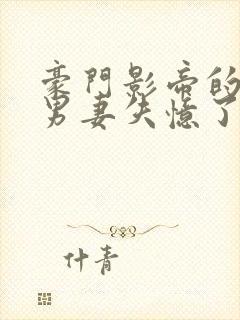 豪門影帝的
男妻失憶了
什青